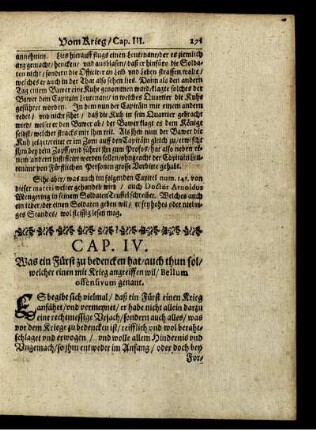 Vom Krieg/ Cap. III.
annehmen. Ließ hierauff flugs einen Leutenant/ der es ziemlich
arg gemacht/ hencken/ und außblasen/ daß er hinfüro die Solda-
ten nicht/ sondern die Officirer an Leib und Leben straffen wolte/
welches er auch in der That also sehen ließ. Dann als den andern
Tag einem Bawer eine Kuhe genommen ward/ klagte solches der
Bawer dem Capitäin Leutenant/ in welches Quartier die Kuhe
geführet worden. In dem nun der Capitäin mit einem andern
redet/ und nicht
wird/ weiset er den Bawer ab/ der Bawer klagt es dem Könige
selbst/ welcher stracks mit ihm reit. Als ihm nun der Bawer die
Kuh zeiget/ rennet er im Zorn auff den Capitäin gleich zu/ erwischt
ihn bey dem Zopffe/ und führet ihn zum Profos/
einem andern justificiret werden sollen/ ohngeacht der Capitäin Leu-
tenant von Fürstlichen Personen grosse Vorbitte gehabt.
Sihe aber/ was auch im folgenden Capitel num. 145. von
dieser materi weiter gehandelt wird/ auch Doctor Arnoldus
Mengering in seinem Soldaten Teuffel schreibet. Welches auch
ein jeder/ der einen Soldaten geben wil/ er sey hohes oder nied-
riges Standes/ wol fleissig lesen mag.
CAP. IV.
Was ein Fürst zu bedencken hat/ auch thun sol/
welcher einen mit Krieg angreiffen wil/ Bellum
offensivum genant.
ES begibt sich vielmal/ daß ein Fürst einen Krieg
anfähet/ und vermeynet/ er habe nicht allein darzu
eine rechtmessige Ursach/ sondern auch alles/ was
vor dem Kriege zu bedencken ist/ reifflich und wol berath-
schlaget und erwogen/ und wolle allem Hindernis und
Ungemach/ so jhm entweder im Anfang/ oder doch bey
For-